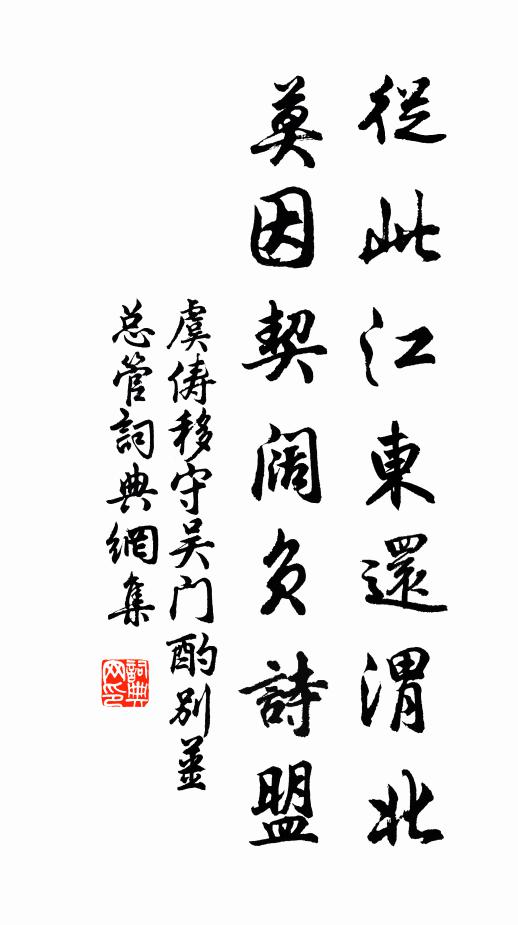 從此江東還渭北
莫因契阔負詩盟
虞儔移守吴门酌別薑
总管詞典網集
詞典网